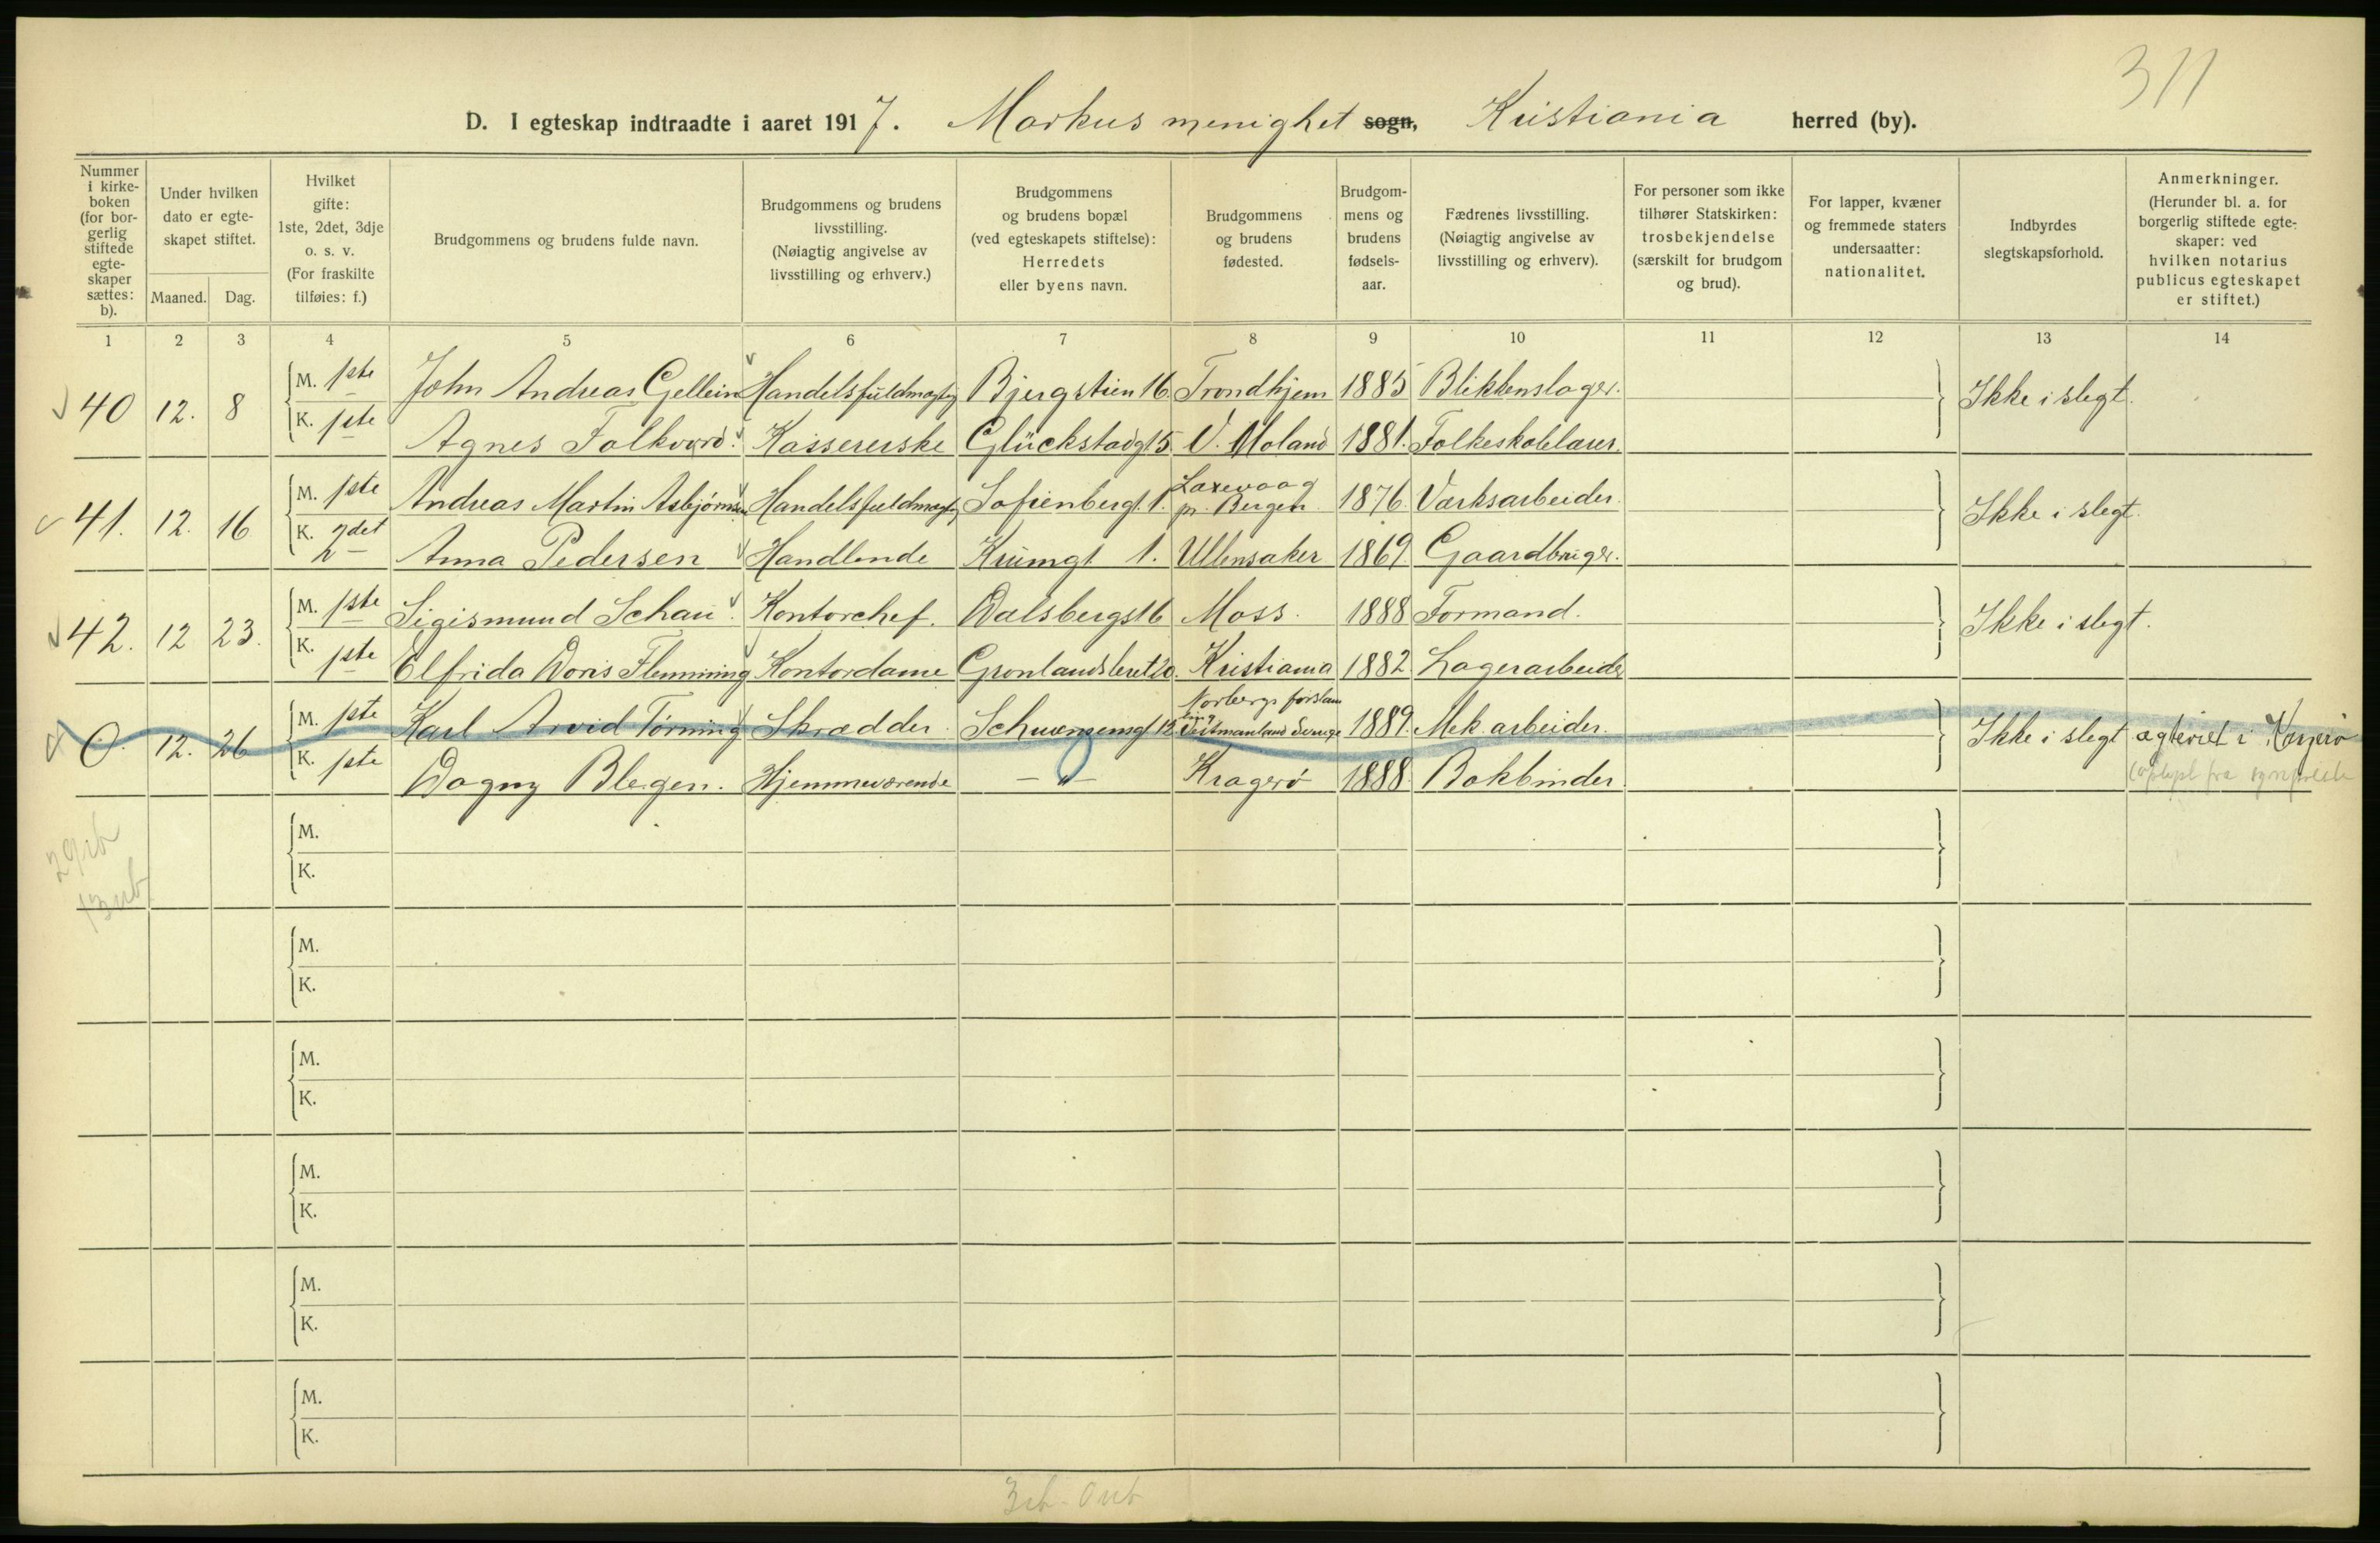 311
D. I egteskap indtraadte i aaret 1917. Markus menighet sogn, Kristiania herred (by).
Nummer i kirke-boken (for bor-gerlig stiftede egte-skaper sættes: b).
Under hvilken dato er egte-skapet stiftet.
Maaned. Dag.
Hvilket gifte: 1ste, 2det, 3dje o. s. v. (For fraskilte tilføies: f.)
Brudgommens og brudens fulde navn.
Brudgommens og brudens livsstilling. (Nøiagtig angivelse av livsstilling og erhverv.)
Brudgommens og brudens bopæl (ved egteskapets stiftelse): Herredets eller byens navn.
Brudgommens og brudens fødested.
Brudgom-mens og brudens fødsels-aar.
Fædrenes livsstilling. (Nøiagtig angivelse av livsstilling og erhverv).
For personer som ikke tilhører Statskirken: trosbekjendelse (særskilt for brudgom og brud).
For lapper, kvæner og fremmede staters undersaatter: nationalitet.
Indbyrdes slegtskapsforhold.
Anmerkninger. (Herunder bl. a. for borgerlig stiftede egte-skaper: ved hvilken notarius publicus egteskapet er stiftet.)
1 2 3 4 5 6 7 8 9 10 11 12 13 14
40 12. 8 M. 1ste John Andreas Gellein Handelsfuldmægtig Bjergstien 16. Trondhjem 1885 Blikkenslager. Ikke i slegt.
K. 1ste Agnes Folkvord. Kassererske Glückstadgt 5 V. Moland 1881. Folkeskolelærer.
41. 12. 16 M. 1ste Andreas Martin Asbjørnsen Handelsfuldmægtig Sofienberggt. 1. Laxevaag pr. Bergen. 1876. Værksarbeider. Ikke i slegt.
K. 2det Anna Pedersen Handlende Krumgt 1. Ullensaker 1869. Gaardbruger.
42. 12 23. M. 1ste Sigismund Schau. Kontorchef. Dalsbergst 6 Moss. 1888 Formand. Ikke i slegt.
K. 1ste Elfrida Doris Flemming Kontordame Grønlandsleret 20. Kristiania 1882. Lagerarbeider
0. 12. 26 M. 1ste Karl Arvid Törning Skrædder. Schwensensgt 12 Norbergs førsamling Vestmanland Sverige 1889. Mek. arbeider. Ikke i slegt ægteviet i Kragerø
K. 1ste Dagny Blegen. Hjemmeværende — " — Kragerø 1888. Bokbinder
M.
K.
M.
K.
M.
K.
M.
K.
M.
K.
M.
K.